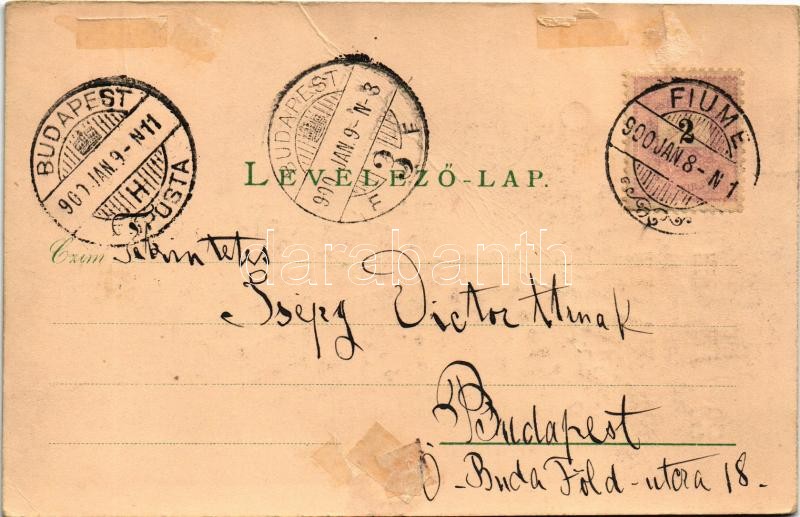 BUDAPEST
900 JAN. 9 - N 11
H
POSTA
BUDAPEST
900 JAN. 9 - N - 8
3
F F
FIUME
2
900 JAN. 8 - N 1
LEVELEZŐ-LAP.
Czim Tekintetes
Victor Úrnak
Budapest
Ó-Buda Föld-utcza 18.
darabanth